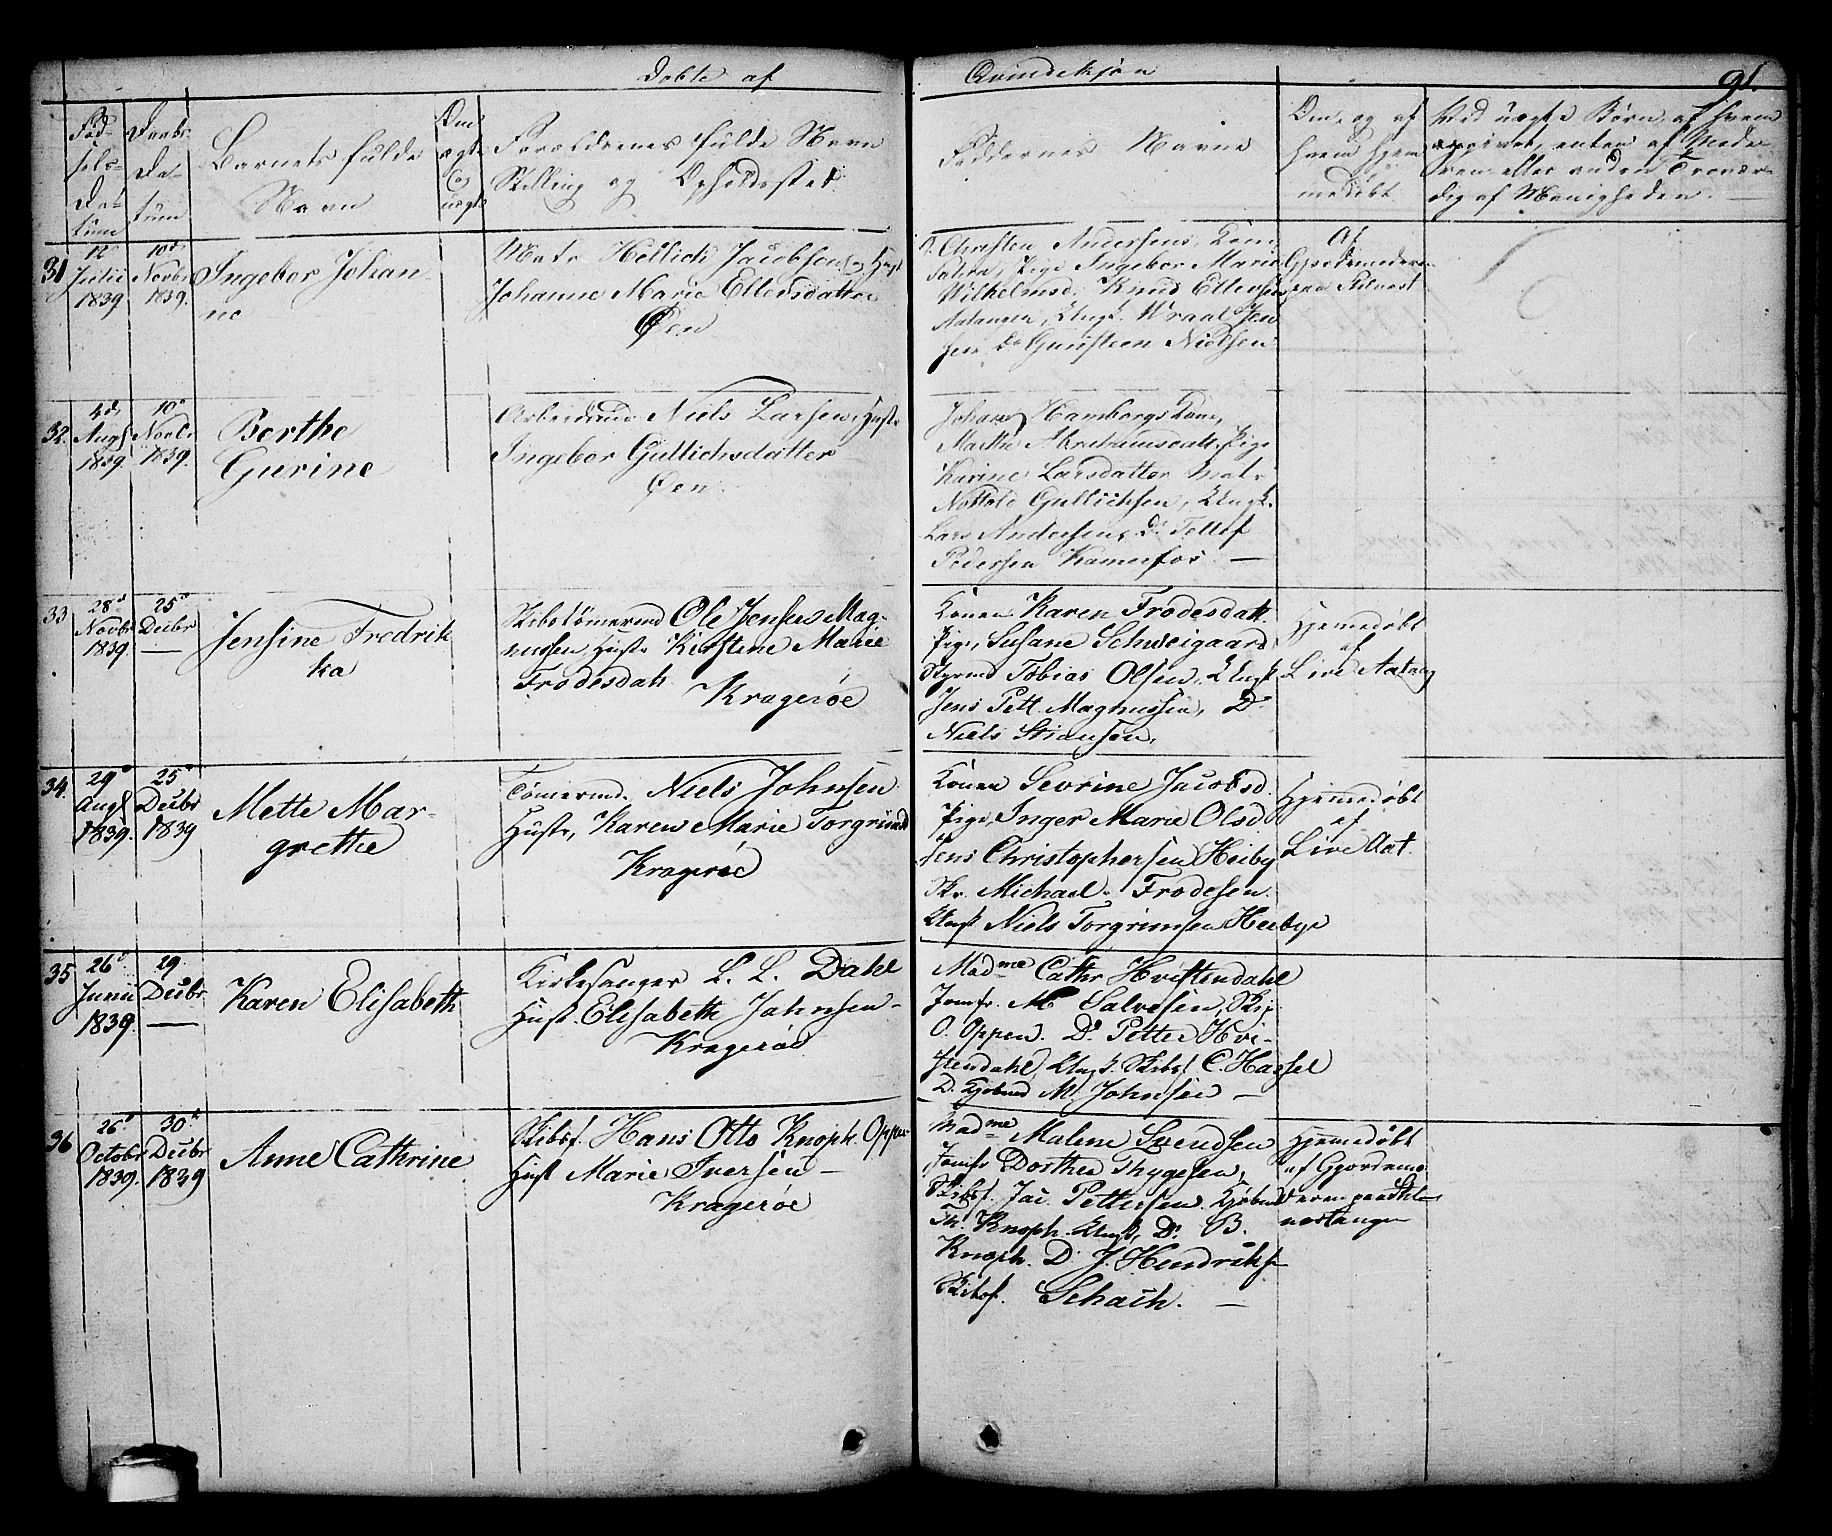 Døbte af Qvindekjøn 91.
Fød-
sels-
Da-
tum
Daabs
Da-
tum
Barnets fulde
Navn
Om
ægte
og
uægte
Forældrenes fulde Navn
Stilling og Opholdsted
Faddernes Navne
Om, og af
hvem hjem
medøbt
Ved uægte Børn, af hvem
opgivet, enten af Mode-
ren eller anden Trovær-
dig af Menigheden. —
31
12
Julii
1839
10d
Novbr
1839.
Ingebor Johan
ne
Matr Hellich Jacobsen og Hust
Johanne Marie Ellersdatter
Øen
Christen Andersens Kone,
Pige Ingebor Marie
Wilhelmsd. Knud Ellersen
Aatangen, Ungk. Wraal Jen
sen Do Gunsteen Nielsen
Af
Gjordemoderen
paa Stilnest
32.
4d
Augs
1839.
10d
Novbr
1839.
Berthe
Gurine
Arbeidsmd Niels Larsen, Hustr
Ingebor Gullichsdatter
Øen.
Johan Hambergs Kone,
Marthe Abrahamsdatt. Pige
Karine Larsdatter Mat.
Gullichsen, Ungk.
Lars Andersen, D. Tellef
Pedersen Kamerfos. —
33
28d
Novbr
1839.
25d
Decbr
—
Jensine Fredrik
ka
Skibstömermd Ole Jensen Mag-
nussen, Hustr Kirstine Marie
Frodesdatt.
Kragerøe
Konen Karen Frodesdatt.
Pige, Susane Schweigaard
Styrmd Tobias Olsen, Ungk
Jens Pett. Magnussen, D
Niels Stiansen,
Hjemedøbt
af
Live Aatang
34.
29d
Augs
1839.
25d
Decbr
1839
Mette Mar-
grethe
Tömermd. Niels Johnsen
Hustr, Karen Marie Torgrimsd
Kragerøe
Konen Sevrine Jacobsd.
Pige, Inger Marie Olsd
Jens Christophersen Heiby
Sk. Michael Frodesen.
Ungk Niels Torgrimsen Heibye
Hjemedøbt
af
Live Aat.
35
26d
Junii
1839.
29
Decbr
—
Karen Elisabeth
Kirkesanger L. L. Dahl
Hust. Elisabeth Johnsen –
Kragerøe
Madme Cathr Hvistendahl
Jomfr. M Salvesen, Skip.
O. Oppen. D. Petter Hvi-
stendahl, Ungk. Skibsf. C. Hassel
D. Kjöbmd M. Johnsen —
36
26d
Octobr
1839.
30d
Decbr
1839
Anne Cathrine
Skibsf. Hans Otto Knoph. Oppen
Hust Marie Iversen –
Kragerøe
Madme Malene Svendsen
Jomfr Dorthea Thygesen,
Skibsf. Jac Pettersen. Kjöbmd
Th. Knoph. Ungk, D. B.
Knoph. D J. Hendriks
Skibsf. Schach. —
Hjemedøbt
af Gjordemo
deren paa Stil
nestangen